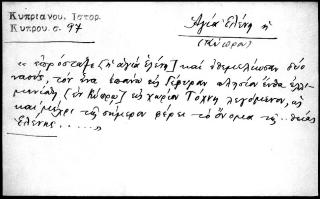 Κυπριανου. Ιστορ.
Κυπρου. σ. 97
Ἁγία Ἑλένη ἡ
(Κύπρον)
« ἐπρόσταξε [ἡ ἁγία ἑλένη] καὶ ἐθεμελίωσαν δύο
ναούς, τὸν ἕνα ἐπάνω εἰς Γέφυραν πλησίον ἔνθα
[ἐν Κύπρῳ] εἰς χωρίον Τόχνη λεγόμενον, ὡς
καὶ μέχρι τῆς σήμερον φέρει τὸ ὄνομα τῆς θείας
Ἑλένης . . . . . »